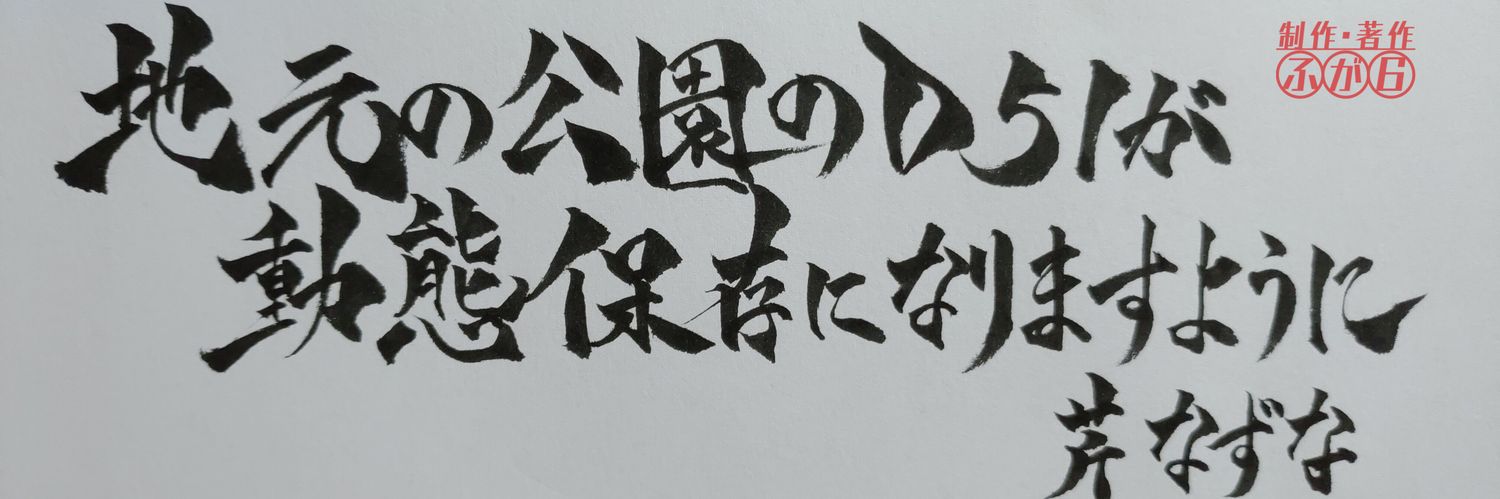 地元の公園のD51が
動態保存になりますように
芹なずな
制作・著作
ふが6